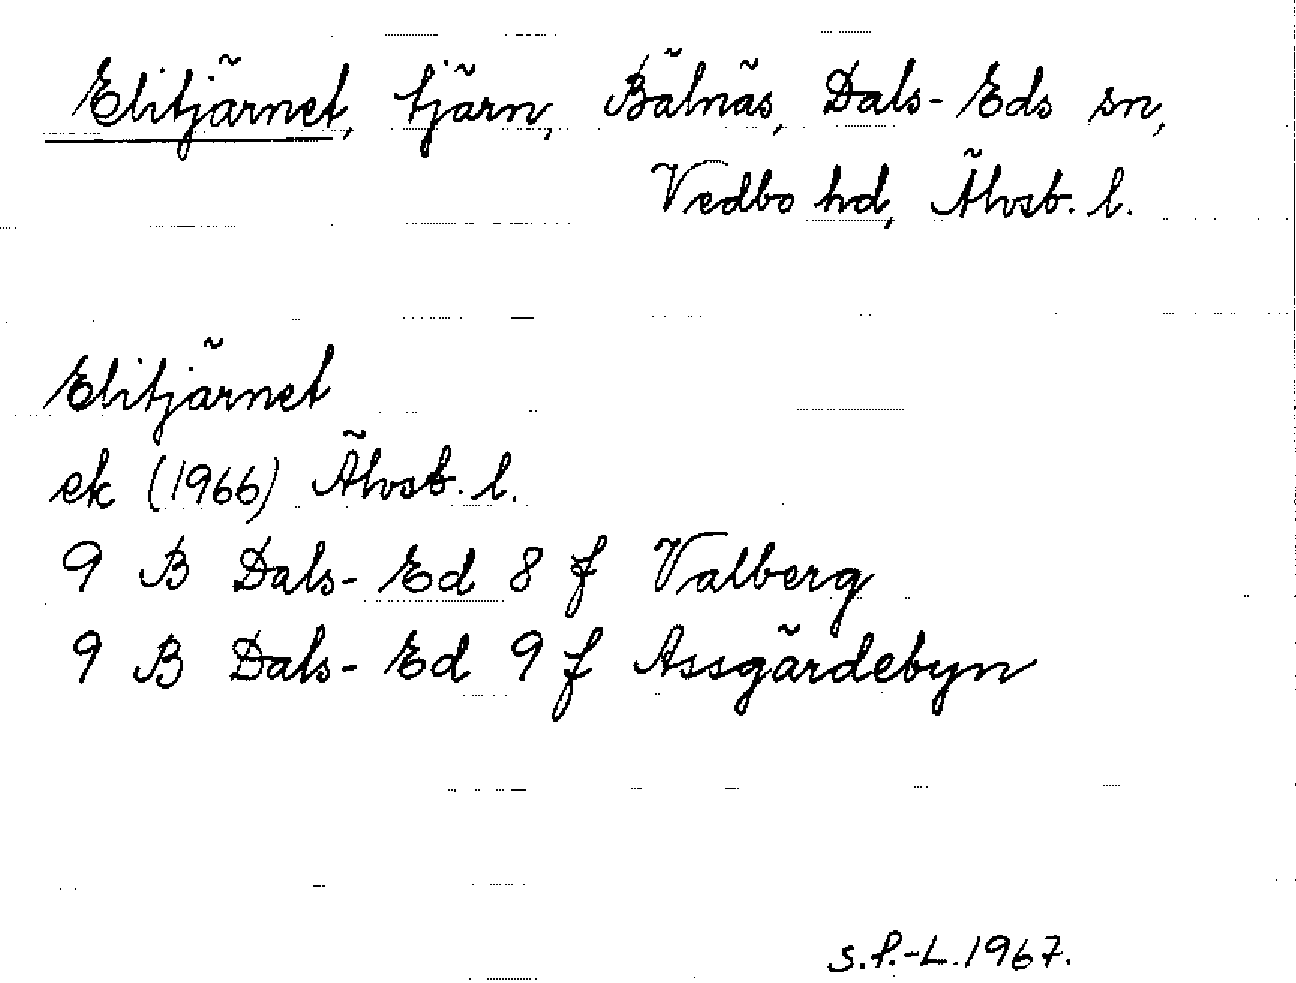 Elitjärnet, tjärn, Bälnäs, Dals-Eds sn,
Vedbo hd, Älvsb. l.
Elitjärnet
ek (1966) Älvsb. l.
9 B Dals-Ed 8 f Valberg
9 B Dals-Ed 9 f Assgärdebyn
S.P.-L. 1967.